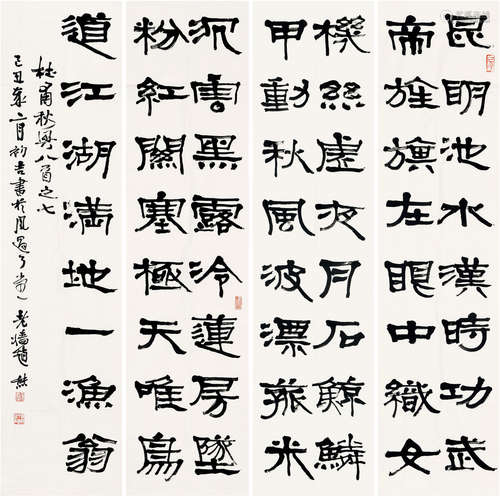 昆明池水漢時功武
帝旌旗在眼中織女
機絲虛夜月石鯨鱗
甲動秋風波漂菰米
沉雲黑露冷蓮房墜
粉紅關塞極天唯鳥
道江湖滿地一漁翁
杜甫秋興八首之七
己丑歲二月初吉書於風過耳堂 老墻趙熊